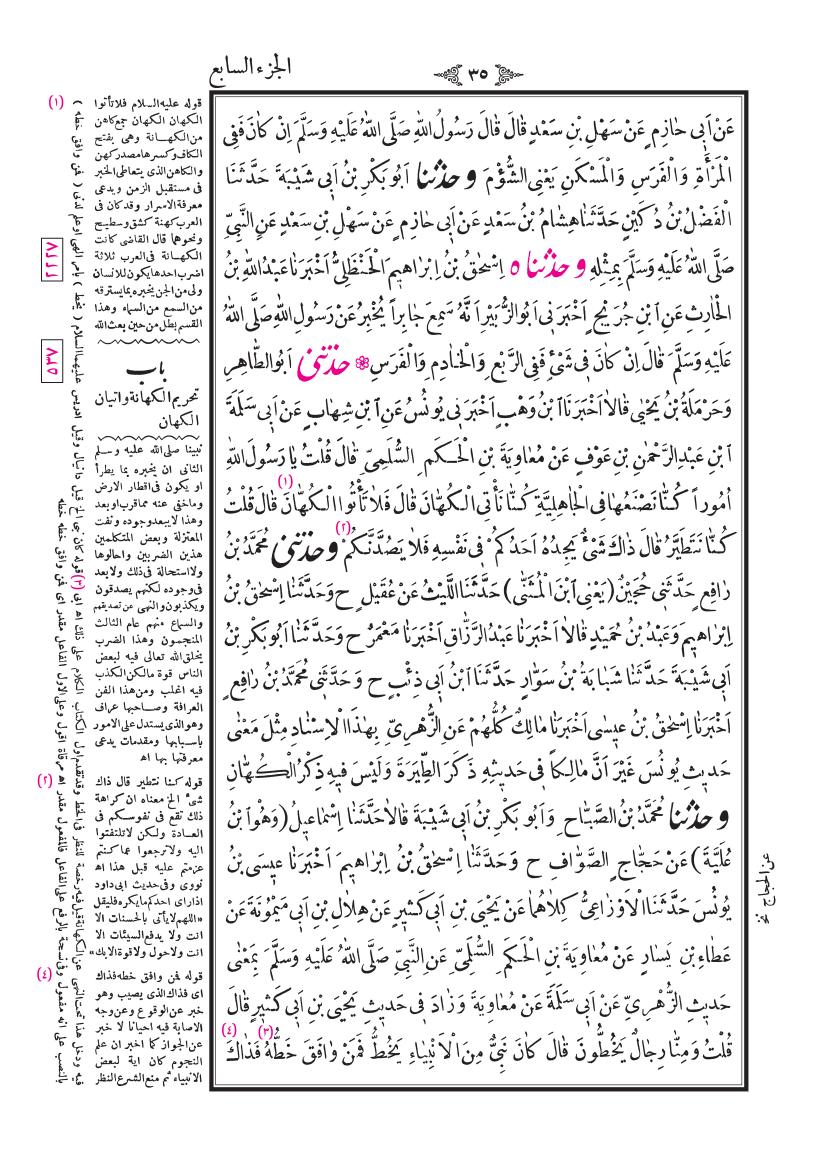 الجزء السابع
٣٥
عَنْ اَبِى حَازِمٍ عَنْ سَهْلِ بْنِ سَعْدٍ قَالَ قَالَ رَسُولُ اللهِ صَلَّى اللهُ عَلَيْهِ وَسَلَّمَ اِنْ كَانَ فَفِى
الْمَرْأَةِ وَالْفَرَسِ وَالْمَسْكَنِ يَعْنِى الشُّؤْمَ وحدثنا اَبُو بَكْرِ بْنُ اَبِى شَيْبَةَ حَدَّثَنَا
الْفَضْلُ بْنُ دُكَيْنٍ حَدَّثَنَا هِشَامُ بْنُ سَعْدٍ عَنْ اَبِى حَازِمٍ عَنْ سَهْلِ بْنِ سَعْدٍ عَنِ النَّبِىِّ
صَلَّى اللهُ عَلَيْهِ وَسَلَّمَ بِمِثْلِهِ وحدثنا ٥ اِسْحٰقُ بْنُ اِبْرَاهِيمَ الْحَنْظَلِىُّ اَخْبَرَنَا عَبْدُ اللهِ بْنُ
الْحَارِثِ عَنِ ابْنِ جُرَيْجٍ اَخْبَرَنِى اَبُو الزُّبَيْرِ اَنَّهُ سَمِعَ جَابِراً يُخْبِرُ عَنْ رَسُولِ اللهِ صَلَّى اللهُ
عَلَيْهِ وَسَلَّمَ قَالَ اِنْ كَانَ فِى شَىْءٍ فَفِى الرَّبْعِ وَالْخَادِمِ وَالْفَرَسِ ۞ حدثنى اَبُو الطَّاهِرِ
وَحَرْمَلَةُ بْنُ يَحْيٰى قَالاَ اَخْبَرَنَا ابْنُ وَهْبٍ اَخْبَرَنِى يُونُسُ عَنِ ابْنِ شِهَابٍ عَنْ اَبِى سَلَمَةَ
ابْنِ عَبْدِ الرَّحْمٰنِ بْنِ عَوْفٍ عَنْ مُعَاوِيَةَ بْنِ الْحَكَمِ السُّلَمِىِّ قَالَ قُلْتُ يَا رَسُولَ اللهِ
اُمُوراً كُنَّا نَصْنَعُهَا فِى الْجَاهِلِيَّةِ كُنَّا نَأْتِى الْكُهَّانَ قَالَ فَلاَ تَأْتُوا الْكُهَّانَ (١) قَالَ قُلْتُ
كُنَّا نَتَطَيَّرُ قَالَ ذَاكَ شَىْءٌ يَجِدُهُ اَحَدُكُمْ فِى نَفْسِهِ فَلاَ يَصُدَّنَّكُمْ (٢) وحدثنى مُحَمَّدُ بْنُ
رَافِعٍ حَدَّثَنِى حُجَيْنٌ (يَعْنِى ابْنَ الْمُثَنّٰى) حَدَّثَنَا اللَّيْثُ عَنْ عُقَيْلٍ ح وَحَدَّثَنَا اِسْحٰقُ بْنُ
اِبْرَاهِيمَ وَعَبْدُ بْنُ حُمَيْدٍ قَالاَ اَخْبَرَنَا عَبْدُ الرَّزَّاقِ اَخْبَرَنَا مَعْمَرٌ ح وَحَدَّثَنَا اَبُو بَكْرِ بْنُ
اَبِى شَيْبَةَ حَدَّثَنَا شَبَابَةُ بْنُ سَوَّارٍ حَدَّثَنَا ابْنُ اَبِى ذِئْبٍ ح وَحَدَّثَنِى مُحَمَّدُ بْنُ رَافِعٍ
اَخْبَرَنَا اِسْحٰقُ بْنُ عِيسٰى اَخْبَرَنَا مَالِكٌ كُلُّهُمْ عَنِ الزُّهْرِىِّ بِهٰذَا الْاِسْنَادِ مِثْلَ مَعْنٰى
حَدِيثِ يُونُسَ غَيْرَ اَنَّ مَالِكاً فِى حَدِيثِهِ ذَكَرَ الطِّيَرَةَ وَلَيْسَ فِيهِ ذِكْرُ الْكُهَّانِ
وحدثنا مُحَمَّدُ بْنُ الصَّبَّاحِ وَاَبُو بَكْرِ بْنُ اَبِى شَيْبَةَ قَالاَ حَدَّثَنَا اِسْمَاعِيلُ (وَهُوَ ابْنُ
عُلَيَّةَ) عَنْ حَجَّاجٍ الصَّوَّافِ ح وَحَدَّثَنَا اِسْحٰقُ بْنُ اِبْرَاهِيمَ اَخْبَرَنَا عِيسَى بْنُ
يُونُسَ حَدَّثَنَا الْاَوْزَاعِىُّ كِلاَهُمَا عَنْ يَحْيَى بْنِ اَبِى كَثِيرٍ عَنْ هِلاَلِ بْنِ اَبِى مَيْمُونَةَ عَنْ
عَطَاءِ بْنِ يَسَارٍ عَنْ مُعَاوِيَةَ بْنِ الْحَكَمِ السُّلَمِىِّ عَنِ النَّبِىِّ صَلَّى اللهُ عَلَيْهِ وَسَلَّمَ بِمَعْنٰى
حَدِيثِ الزُّهْرِىِّ عَنْ اَبِى سَلَمَةَ عَنْ مُعَاوِيَةَ وَزَادَ فِى حَدِيثِ يَحْيَى بْنِ اَبِى كَثِيرٍ قَالَ
قُلْتُ وَمِنَّا رِجَالٌ يَخُطُّونَ (٣) قَالَ كَانَ نَبِىٌّ مِنَ الْاَنْبِيَاءِ يَخُطُّ فَمَنْ وَافَقَ خَطَّهُ فَذَاكَ (٤)
(١) قوله عليه السلام فلا تأتوا
الكهان الكهان جمع كاهن
من الكهانة وهى بفتح
الكاف وكسرها مصدر كهن
والكاهن الذى يتعاطى الخبر
فى مستقبل الزمن ويدعى
معرفة الاسرار وقد كان فى
العرب كهنة كشق وسطيح
ونحوهما قال القاضى كانت
الكهانة فى العرب ثلاثة
اضرب احدها يكون للانسان
ولى من الجن يخبره بما يسترقه
من السمع من السماء وهذا
القسم بطل من حين بعث الله
٢٢٤٧
٥٣٧
باب
تحريم الكهانة واتيان
الكهان
نبينا صلى الله عليه وسلم
الثانى ان يخبره بما يطرأ
او يكون فى اقطار الارض
وما خفى عنه مما قرب او بعد
وهذا لا يبعد وجوده ونفت
المعتزلة وبعض المتكلمين
هذين الضربين واحالوها
ولا استحالة فى ذلك ولا بعد
فى وجوده لكنهم يصدقون
ويكذبون والنهى عن تصديقهم
والسماع منهم عام الثالث
المنجمون وهذا الضرب
يخلق الله تعالى فيه لبعض
الناس قوة ما لكن الكذب
فيه اغلب ومن هذا الفن
العرافة وصاحبها عراف
وهو الذى يستدل على الامور
باسبابها ومقدمات يدعى
معرفتها بها اه
(٢) قوله كنا نتطير قال ذاك
شىء الخ معناه ان كراهة
ذلك تقع فى نفوسكم فى
العادة ولكن لا تلتفتوا
اليه ولا ترجعوا عما كنتم
عزمتم عليه قبل هذا اه
نووى وفى حديث ابى داود
اذا رأى احدكم ما يكره فليقل
«اللهم لا يأتى بالحسنات الا
انت ولا يدفع السيئات الا
انت ولا حول ولا قوة الا بك»
(٤) قوله فمن وافق خطه فذاك
اى فذاك الذى يصيب وهو
خبر عن الوقوع وعن وجه
الاصابة فيه احيانا لا خبر
عن الجواز كما اخبر ان علم
النجوم كان آية لبعض
الانبياء ثم منع الشرع النظر
فيه ودخل هذا تحت النهى عن الكهانة
(٣) قوله كان نبى الخ قيل دانيال وقيل ادريس عليهما السلام ( يخط ) بامر الهى او علم لدنى ( فمن وافق خطه )